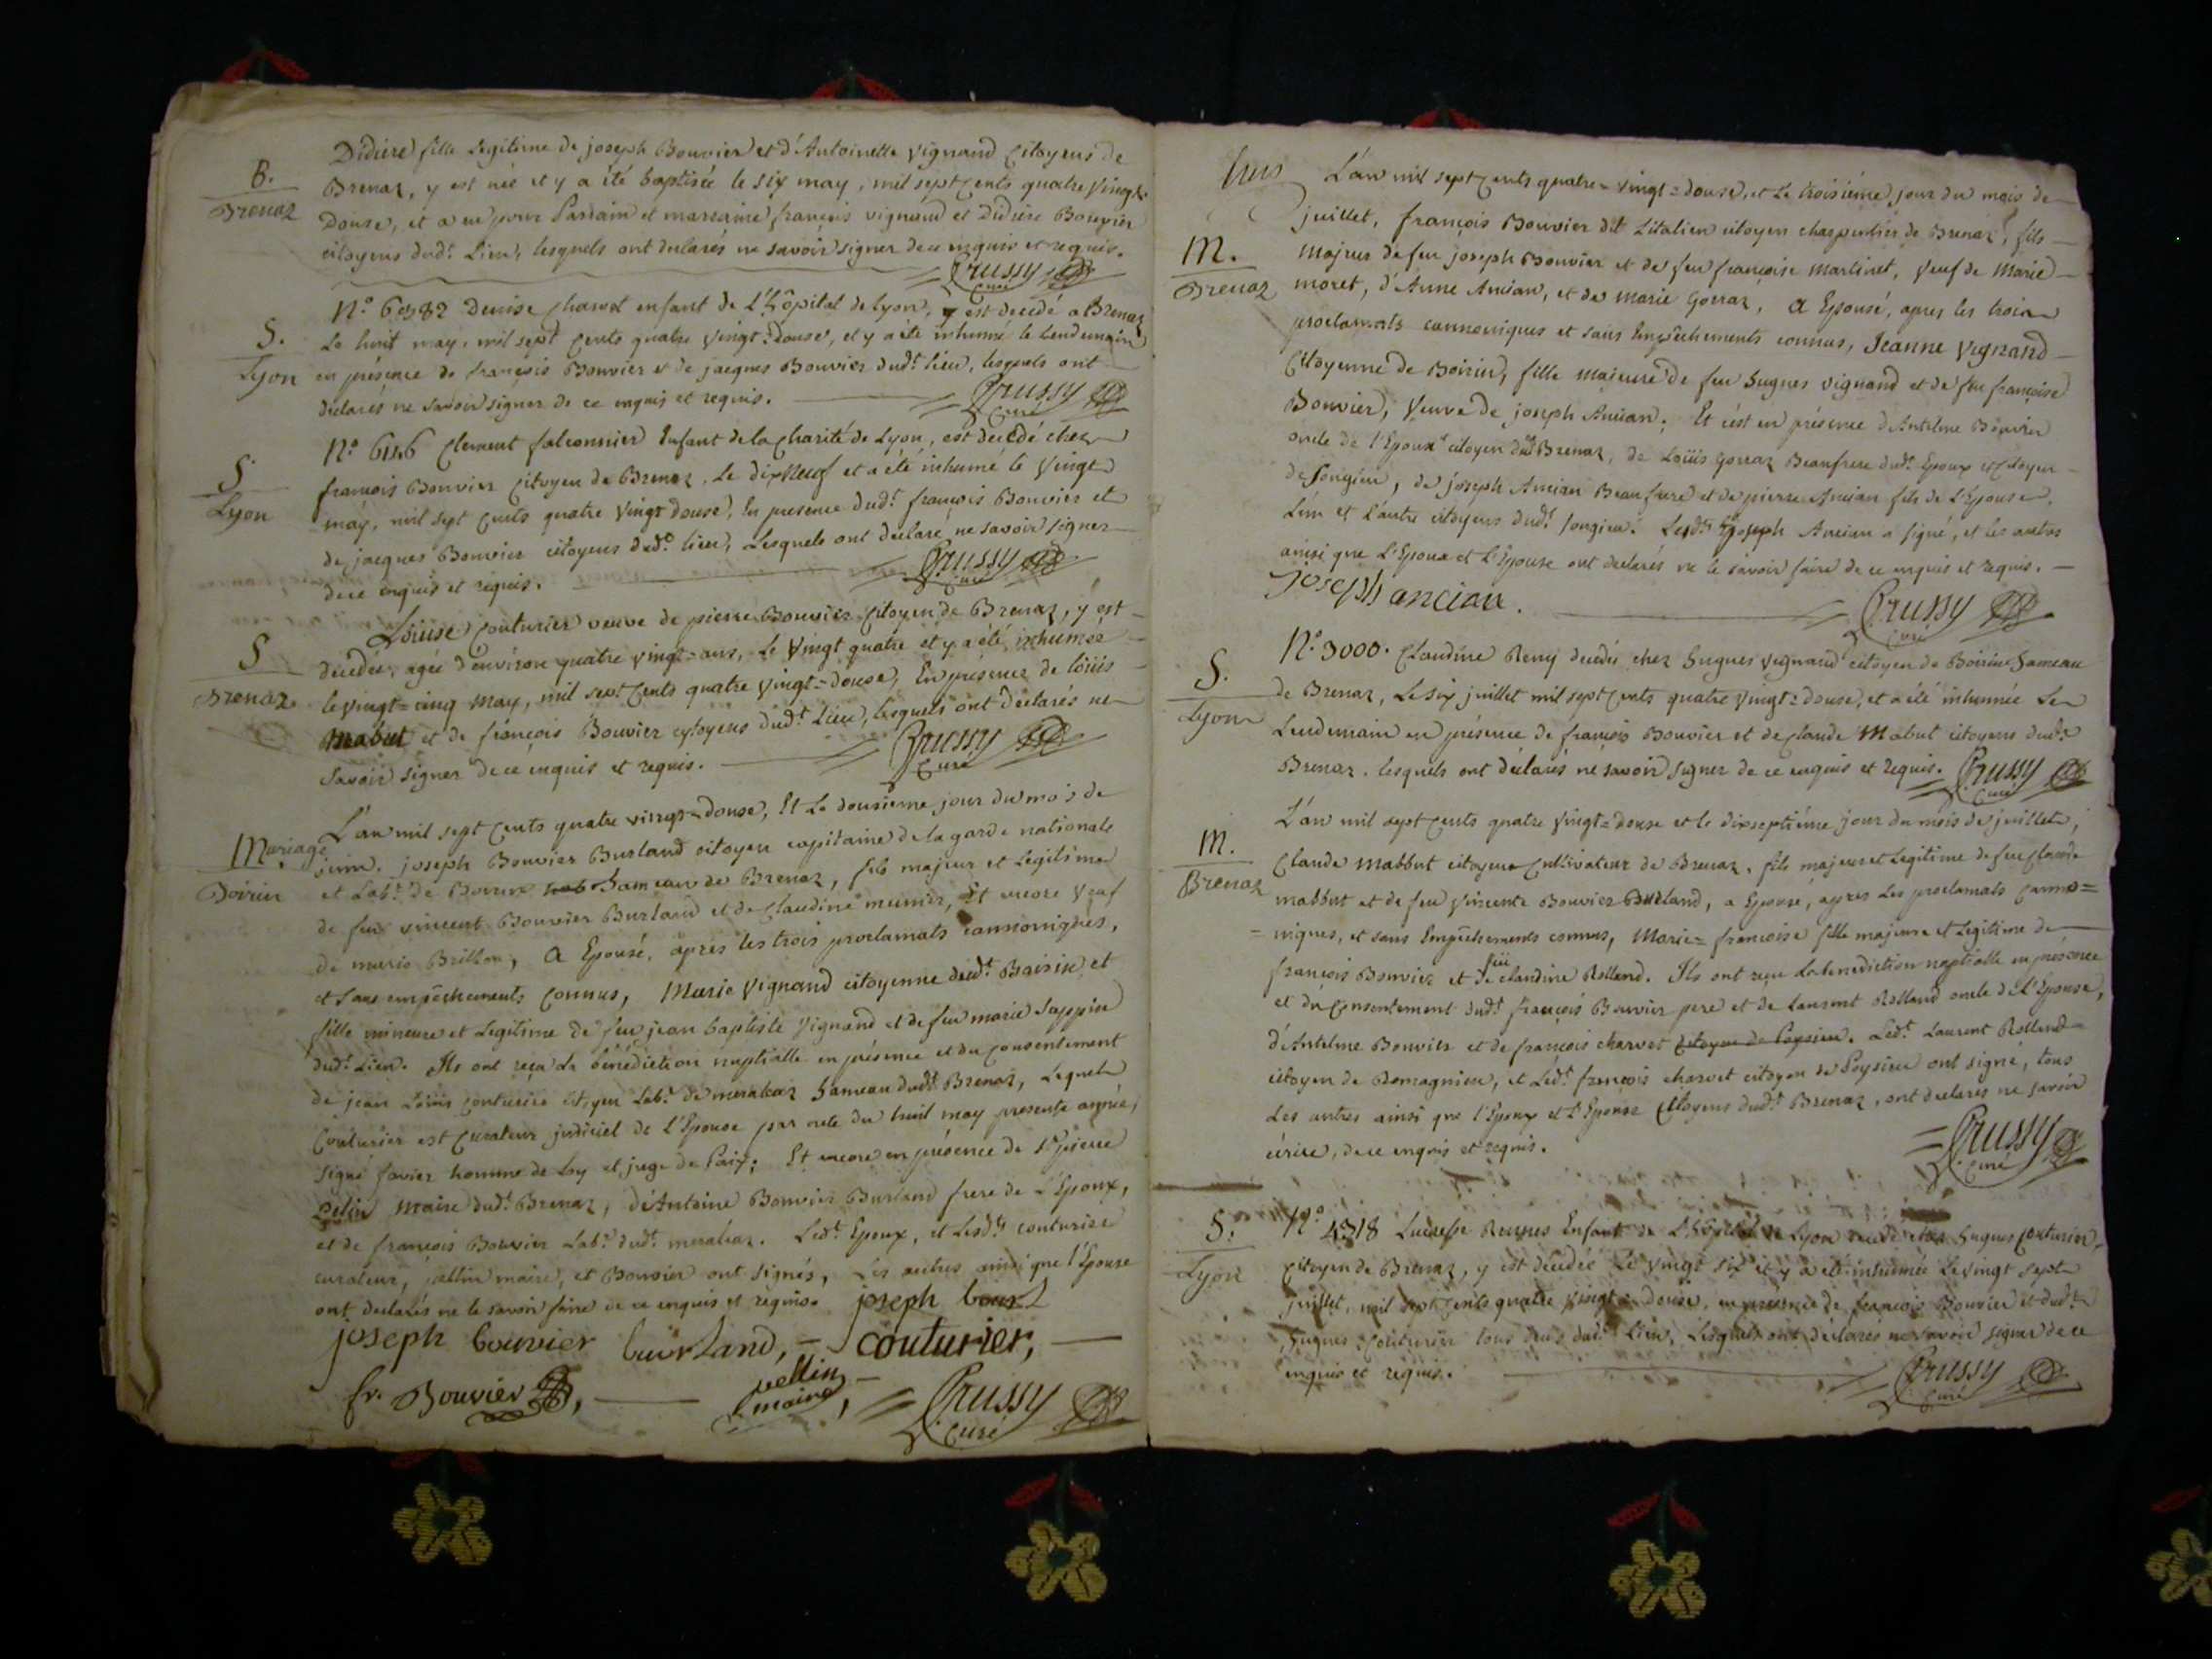 B.
Brenaz
Didiere fille Legitime de joseph Bouvier et d'Antoinette vignand Citoyens de
Brenaz, y est née et y a été baptisée le six may, mil sept Cents quatre Vingt-
Douse, et a eu pour Parrain et marraine françois vignand et Didiere Bouvier
citoyens dudt. Lieu, lesquels ont declarés ne savoir signer de ce enquis et requis.
Crussy
Curé
S.
Lyon
Denise Charvet enfant de L'hôpital de Lyon, y est decedé a Brenaz
Le huit may, mil sept Cents quatre Vingt=douse, et y a été inhumé le Lendemain
en présence de françois Bouvier et de jacques Bouvier dudt. lieu, lesquels ont
declarés ne savoir signer de ce enquis et requis.
Crussy
Curé
S
Lyon
Clement falconnier Enfant de la Charité de Lyon, est decedé chez
françois Bouvier Citoyen de Brenaz, Le dix Neuf et a été inhumé le Vingt
may, mil sept Cents quatre Vingt douse, En presence dudt. françois Bouvier et
de jacques Bouvier citoyens dudt. lieu, Lesquels ont declaré ne savoir signer
de ce enquis et requis.
Crussy
Curé
S
Brenaz
Loüise Couturier veuve de pierre Bouvier Citoyen de Brenaz, y est
decedée, agée d'environ quatre vingt=ans, Le Vingt quatre et y a été inhumée
le vingt=cinq May, mil sept Cents quatre Vingt=douse, En présence de loüis
Mabut et de françois Bouvier cytoyens dudt. Lieu, lesquels ont declarés ne
savoir signer de ce enquis et requis.
Crussy
Curé
Mariage
Boirin
L'an mil sept Cents quatre vingt=douse, Et Le dousieme jour du mois de
juin. joseph Bouvier Burland citoyen capitaine de la garde nationale
et Labr. de Boirin hameau de Brenaz, fils majeur et Legitime
de feu vincent Bouvier Burland et de Claudine munier, Et encore Veuf
de marie Brillon, A Epousé, apres les trois proclamats cannoniques,
et sans empêchements Connus, Marie Vignand citoyenne dudt. Boirin, et
fille mineure et Legitime de feu jean baptiste Vignand et de feu marie Sappin
dudt. Lieu. Ils ont reçu La bénédiction nuptialle en présence et du Consentement
de jean Loüis Couturier citoyen Labr. de meraleaz hameau dudt. Brenaz, Lequel
Couturier est Curateur judiciel de L'Epouse par acte du huit may presente année,
signé favier homme de Loy et juge de Paix; Et encore en présence de Sr. pierre
pelin Maire dudt. Brenaz, d'Antoine Bouvier Burland frere de L'Epoux,
et de françois Bouvier Labr. dudt. meraleaz. Ledt. Epoux, et Lesdts. couturier
curateur, pellin maire, et Bouvier ont signés, Les autres ainsi que l'Epouse
ont declarés ne le savoir faire de ce enquis et requis.
joseph bouvier buorland, - couturier,
fr. Bouvier, pellin
maire,
Crussy
Curé
M.
Brenaz
L'an mil sept Cents quatre=vingt=douse, et Le troisiéme jour du mois de
juillet, françois Bouvier dit L'italien citoyen charpentier de Brenaz, fils
Majeur de feu joseph Bouvier et de feu françoise Martinet, Veuf de Marie
moret, d'Anne Ancian, et de Marie Gorraz, A Epousé, apres les trois
proclamats cannoniques et sans Empêchements connus, Jeanne Vignand
Citoyenne de Boirin, fille Majeure de feu hugues vignand et de feu françoise
Bouvier, Veuve de joseph Ancian. Et c'est en présence d'Antelme Bouvier
oncle de l'Epoux citoyen dudt Brenaz, de Loüis gorraz Beaufrere dudt. Epoux et Citoyen
de Songieu, de joseph Ancian Beaufrere et de pierre Ancian fils de L'Epouse,
L'un et L'autre citoyens dudt Songieu. Ledt. joseph Ancian a signé, et les autres
ainsi que L'Epoux et L'Epouse ont declarés ne le savoir faire de ce enquis et requis.
joseph ancian.
Crussy
Curé
S.
Lyon
No. 3000. Claudine Remy decedée chez hugues vignand citoyen de Boirin hameau
de Brenaz, Le six juillet mil sept Cents quatre Vingt=douse, et a été inhumée Le
Lendemain en présence de françois Bouvier et de Claude Mabut citoyens dudt
Brenaz. lesquels ont declarés ne savoir signer de ce enquis et requis.
Crussy
Curé
M.
Brenaz
L'an mil sept Cents quatre Vingt=douse et le dixseptiéme jour du mois de juillet,
Claude Mabbut citoyen Cultivateur de Brenaz, fils majeur et Legitime de feu Claude
mabbut et de feu Vincente Bouvier Burland, a Epousé, apres Les proclamats Canno=
=niques, et sans Empêchements connus, Marie=françoise fille majeure et Legitime de
françois Bouvier et de feu claudine Rolland. Ils ont reçu La benediction nuptialle en présence
et du Consentement dudt françois Bouvier pere et de Laurent Rolland oncle de L'Epouse,
d'Antelme Bouvier et de françois charvet citoyen de Peysieu. Ledt. Laurent Rolland
citoyen de Romagnieu, et Ledt. françois charvet citoyen de Peysieu ont signé, tous
Les autres ainsi que l'Epoux et L'Epouse Citoyens dudt. Brenaz, ont declarés ne savoir
écrire, de ce enquis et requis.
Crussy
Curé
S.
Lyon
No 4318 Enfant de L'hôpital de Lyon hugues couturier,
Citoyen de Brenaz, y est decedée Le vingt six et y a été inhumée Le vingt sept
juillet, mil sept Cents quatre vingt=douse, en présence de françois Bouvier et dudt
hugues couturier tous deux dudt. Lieu, Lesquels ont declarés ne savoir signer de ce
enquis et requis.
Crussy
Curé